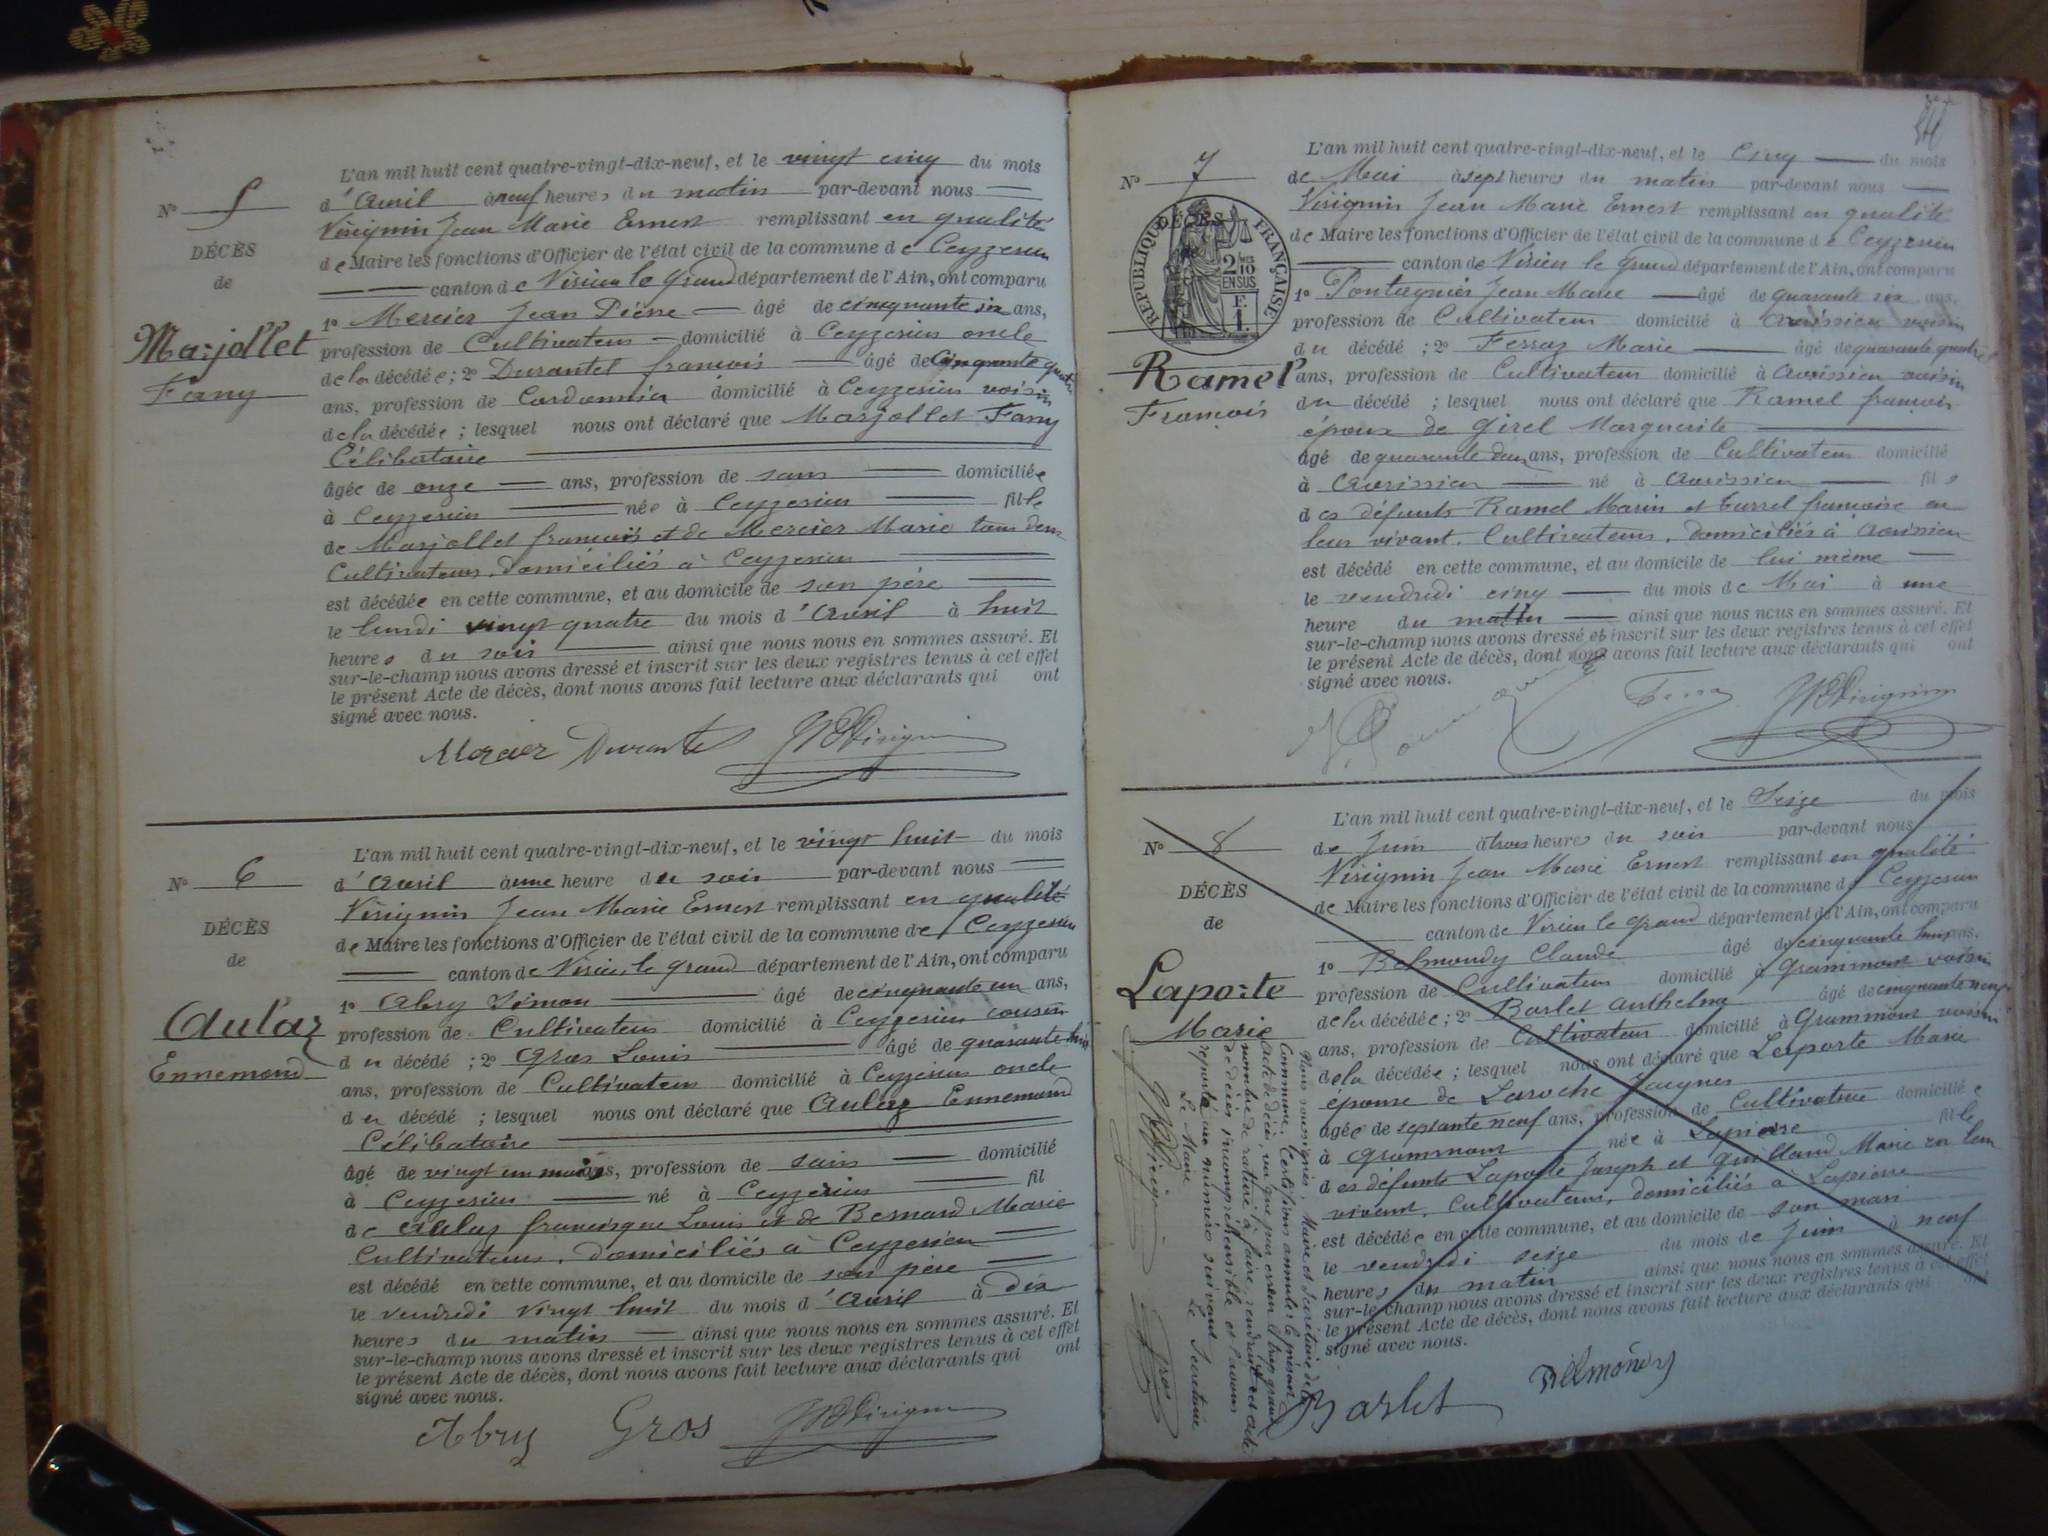 N° 5
DÉCÈS
de
Marjollet
Fany
L'an mil huit cent quatre-vingt-dix-neuf, et le vingt cinq du mois
d'Avril à neuf heures du matin par-devant nous
Virignin Jean Marie Ernest remplissant en qualité
de Maire les fonctions d'Officier de l'état civil de la commune de Ceyzerieu
canton de Virieu le Grand département de l'Ain, ont comparu
1° Mercier Jean Pierre âgé de cinquante six ans,
profession de Cultivateur domicilié à Ceyzerieu oncle
de la décédée; 2° Durantel françois âgé de Cinquante quatre
ans, profession de Cordonnier domicilié à Ceyzerieu voisin
de la décédée; lesquel nous ont déclaré que Marjollet Fany
Célibataire
âgée de onze ans, profession de sans domiciliée
à Ceyzerieu née à Ceyzerieu fille
de Marjollet françois et de Mercier Marie tous deux
Cultivateurs, domiciliés à Ceyzerieu
est décédée en cette commune, et au domicile de son père
le lundi vingt quatre du mois d'Avril à huit
heures du soir ainsi que nous nous en sommes assuré. Et
sur-le-champ nous avons dressé et inscrit sur les deux registres tenus à cet effet
le présent Acte de décès, dont nous avons fait lecture aux déclarants qui ont
signé avec nous.
Mercier Durantel JM Virignin
N° 6
DÉCÈS
de
Aulaz
Ennemond
L'an mil huit cent quatre-vingt-dix-neuf, et le vingt huit du mois
d'Avril à une heure du soir par-devant nous
Virignin Jean Marie Ernest remplissant en qualité
de Maire les fonctions d'Officier de l'état civil de la commune de Ceyzerieu
canton de Virieu le Grand département de l'Ain, ont comparu
1° Abry Simon âgé de cinquante un ans,
profession de Cultivateur domicilié à Ceyzerieu cousin
du décédé; 2° Gros Louis âgé de quarante huit
ans, profession de Cultivateur domicilié à Ceyzerieu oncle
du décédé; lesquel nous ont déclaré que Aulaz Ennemond
Célibataire
âgé de vingt un mois, profession de sans domicilié
à Ceyzerieu né à Ceyzerieu fil
de Aulaz francisque Louis et de Bernard Marie
Cultivateurs, domiciliés à Ceyzerieu
est décédé en cette commune, et au domicile de son père
le vendredi vingt huit du mois d'Avril à dix
heures du matin ainsi que nous nous en sommes assuré. Et
sur-le-champ nous avons dressé et inscrit sur les deux registres tenus à cet effet
le présent Acte de décès, dont nous avons fait lecture aux déclarants qui ont
signé avec nous.
Abry Gros JM Virignin
N° 7
DÉCÈS
RÉPUBLIQUE FRANÇAISE
2/10 EN SUS
F. 1.
Ramel
François
L'an mil huit cent quatre-vingt-dix-neuf, et le Cinq du mois
de Mai à sept heures du matin par-devant nous
Virignin Jean Marie Ernest remplissant en qualité
de Maire les fonctions d'Officier de l'état civil de la commune de Ceyzerieu
canton de Virieu le Grand département de l'Ain, ont comparu
1° Jean Marie âgé de quarante six ans,
profession de Cultivateur domicilié à Avrissieu voisin
du décédé; 2° Ferraz Marie âgé de quarante quatre
ans, profession de Cultivateur domicilié à Avrissieu voisin
du décédé; lesquel nous ont déclaré que Ramel françois
époux de Girel Marguerite
âgé de quarante deux ans, profession de Cultivateur domicilié
à Avrissieu né à Avrissieu fils
des défunts Ramel Marin et françoise en
leur vivant, Cultivateurs, domiciliés à Avrissieu
est décédé en cette commune, et au domicile de lui même
le vendredi cinq du mois de Mai à une
heure du matin ainsi que nous nous en sommes assuré. Et
sur-le-champ nous avons dressé et inscrit sur les deux registres tenus à cet effet
le présent Acte de décès, dont nous avons fait lecture aux déclarants qui ont
signé avec nous.
JM Virignin
N° 8
DÉCÈS
de
Laporte
Marie
L'an mil huit cent quatre-vingt-dix-neuf, et le Seize du mois
de Juin à trois heures du soir par-devant nous
Virignin Jean Marie Ernest remplissant en qualité
de Maire les fonctions d'Officier de l'état civil de la commune de Ceyzerieu
canton de Virieu le Grand département de l'Ain, ont comparu
1° Belmondy Claude âgé de cinquante huit ans,
profession de Cultivateur domicilié à Grammont voisin
de la décédée; 2° Barlet Anthelme âgé de cinquante neuf
ans, profession de Cultivateur domicilié à Grammont voisin
de la décédée; lesquel nous ont déclaré que Laporte Marie
épouse de Laroche Jacques
âgée de septante neuf ans, profession de Cultivatrice domiciliée
à Grammont née à Lapierre fille
des défunts Laporte Joseph et Guilland Marie en leur
vivant, Cultivateurs, domiciliés à Lapierre
est décédée en cette commune, et au domicile de son mari
le vendredi seize du mois de Juin à neuf
heures du matin ainsi que nous nous en sommes assuré. Et
sur-le-champ nous avons dressé et inscrit sur les deux registres tenus à cet effet
le présent Acte de décès, dont nous avons fait lecture aux déclarants qui ont
signé avec nous.
Barlet Belmondy
Nous soussignés, Maire et Secrétaire de la
Commune, Certifions annuler le présent
acte de décès, vu que par erreur le trop grand
nombre de rature à faire, rendrait cet acte
de décès incompréhensible et l'avons
reporté au numéro suivant
Le Maire Le Secrétaire
JM Virignin Gros